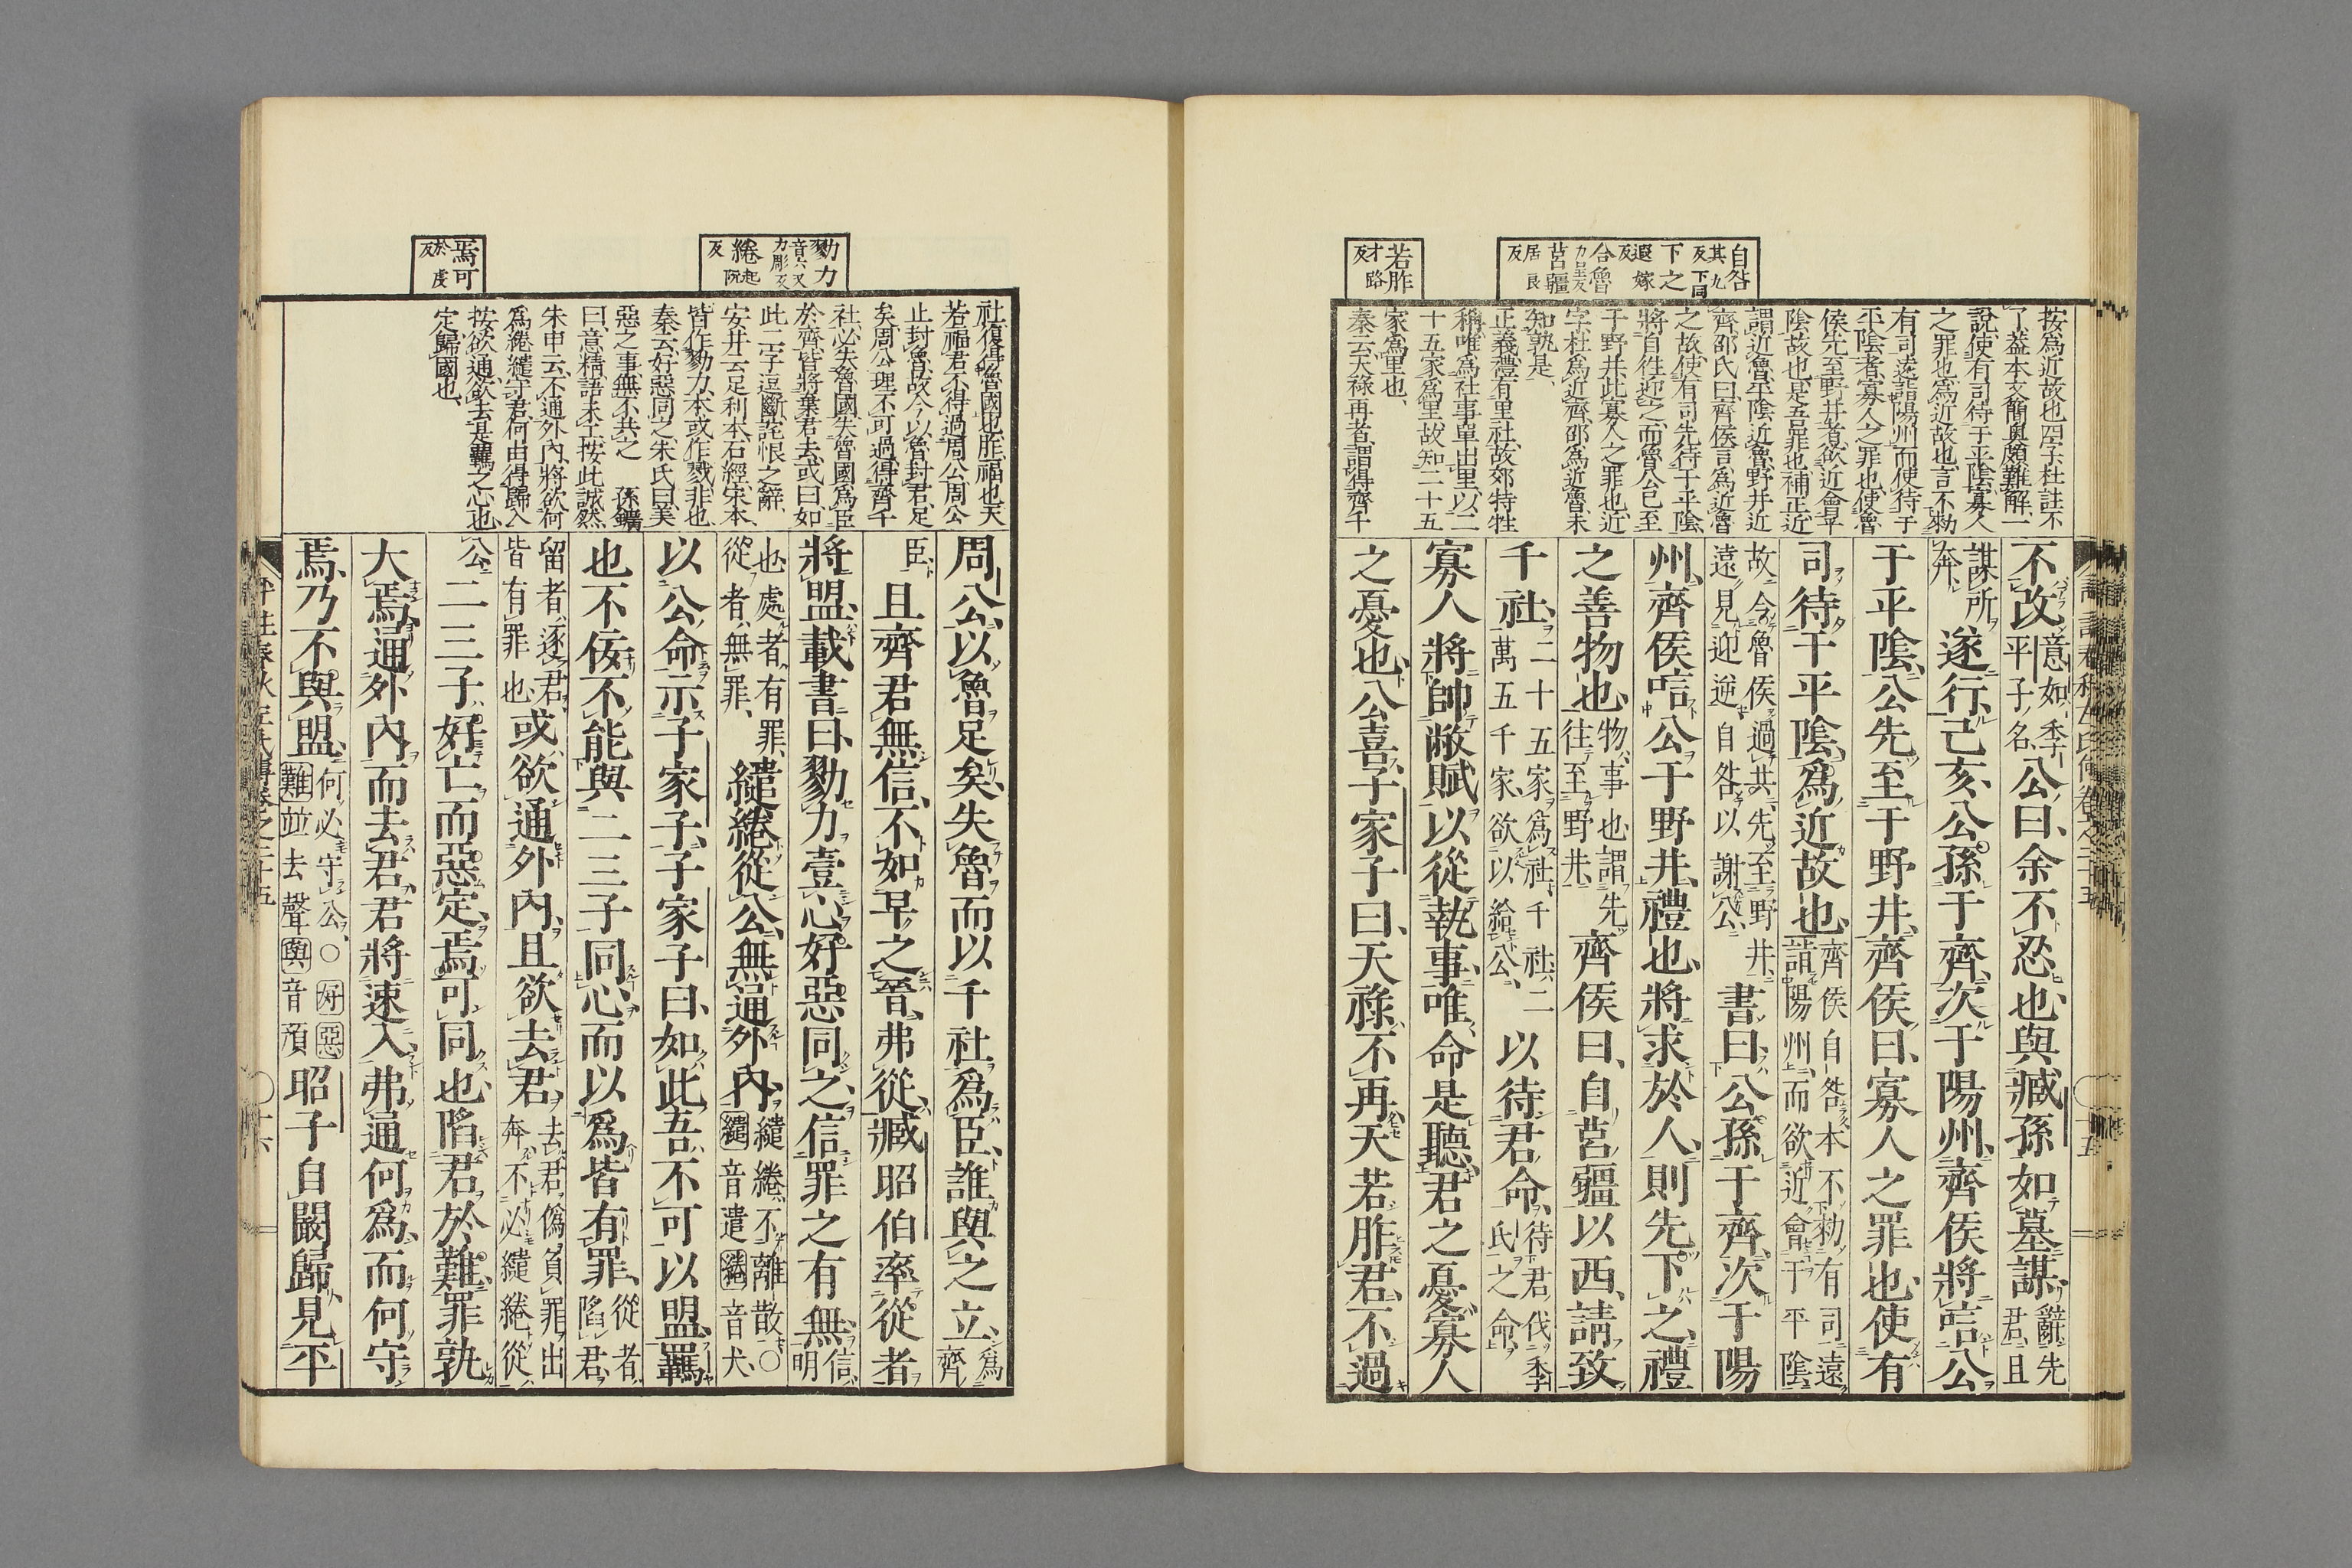 自咎
其九反
下同
下之
遐嫁反
合魯
莒疆
居良反
若胙
才路反
按爲近故也四字杜註不
了蓋本文簡奧頗難解一
說使有司待于平陰寡人
之罪也爲近故也言不勑
有司遠詣陽州而使待于
平陰者寡人之罪也使魯
侯先至野井者欲近會平
陰故也是吾罪也補正近
謂近魯平陰近魯野井近
齊邵氏曰齊侯言爲近魯
之故使有司先待于平陰
將自往迎之而魯公已至
于野井此寡人之罪也近
字杜爲近齊邵爲近魯未
知孰是
正義禮有里社故郊特牲
稱唯爲社事單出里以二
十五家爲里故知二十五
家爲里也
秦云天祿再者謂得齊千
不改意如季平子名公曰余不忍也與臧孫如墓謀辭先君且
謀所奔遂行己亥公孫于齊次于陽州齊侯將唁公
于平陰公先至于野井齊侯曰寡人之罪也使有
司待于平陰爲近故也齊侯自咎本不勑有司遠詣陽州而欲近會于平陰
故令魯侯過共先至野井遠見迎逆自咎以謝公書曰公孫于齊次于陽
州齊侯唁公于野井禮也將求於人則先下之禮
之善物也物事也謂先往至野井齊侯曰自莒疆以西請致
千社二十五家爲社千社二萬五千家欲以給公以待君命待君伐季氏之命
寡人將帥敝賦以從執事唯命是聽君之憂寡人
之憂也公喜子家子曰天祿不再天若胙君不過
勠力
音六又力彫反
綣
起阮反
焉可
於虔反
社復得魯國也胙福也天
若福君不得過周公周公
止封魯故今以魯封君足
矣周公理不可過得齊千
社必失魯國失魯國爲臣
於齊皆將棄君去或曰如
此二字逗斷詫恨之辭
安井云足利本石經宋本
皆作勠力本或作戮非也
秦云好惡同之朱氏曰美
惡之事無不共之 孫鑛
曰意精語未工按此誠然
朱申云不通外內將欲何
爲繾綣守君何由得歸入
按欲通欲去是羈之心也
定歸國也
周公以魯足矣失魯而以千社爲臣誰與之立爲齊
臣且齊君無信不如早之晉弗從臧昭伯率從者
將盟載書曰勠力壹心好惡同之信罪之有無信明
也處者有罪從者無罪繾綣從公無通外內繾綣不離散〇繾音遣綣音犬
以公命示子家子子家子曰如此吾不可以盟羈
也不佞不能與二三子同心而以爲皆有罪從者陷君
留者逐君皆有罪也或欲通外內且欲去君去君僞負罪出奔不必繾綣從
公二三子好亡而惡定焉可同也陷君於難罪孰
大焉通外內而去君君將速入弗通何爲而何守
焉乃不與盟何必守公〇好惡難並去聲與音預昭子自闞歸見平